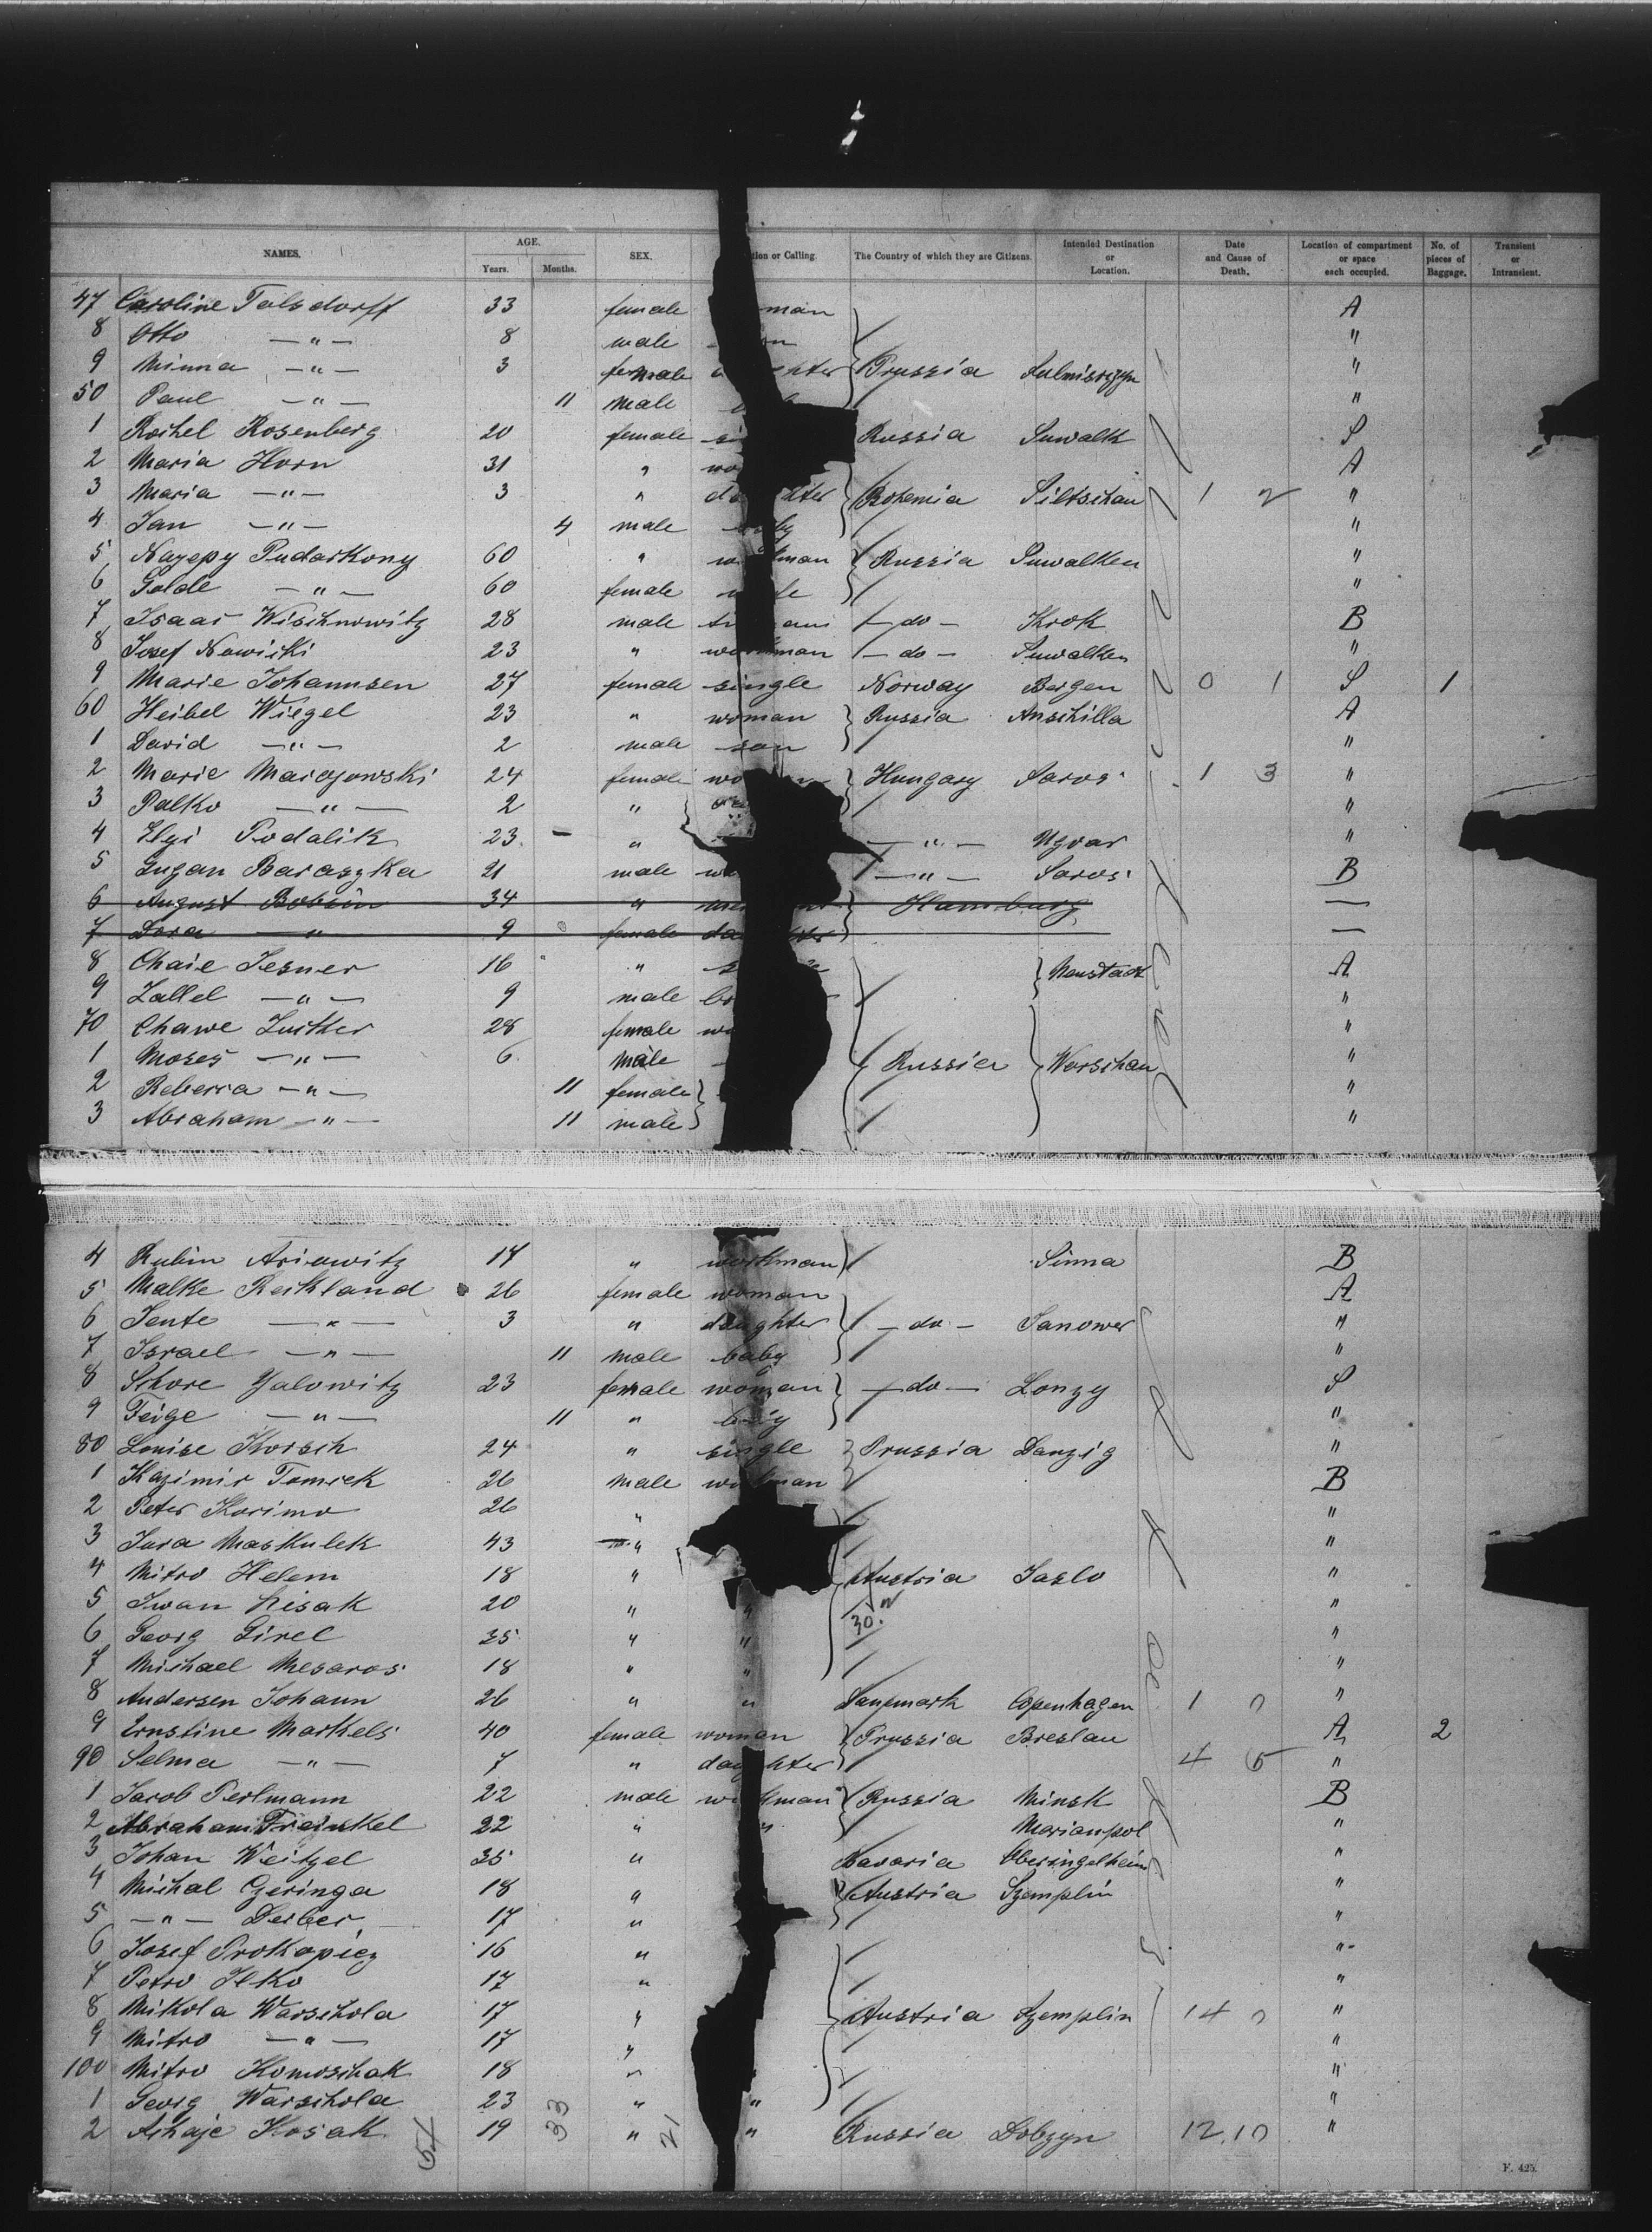 NAMES. AGE. Years. Months. SEX. tion or Calling. The Country of which they are Citizens. Intended Destination or Location. Date and Cause of Death. Location of compartment or space each occupied. No. of pieces of Baggage. Transient or Intransient.
47 Caroline Tolsdorff 33 female man A
8 Otto —"— 8 male "
9 Minna —"— 3 female hter Prussia "
50 Paul —"— 11 male "
1 Rochel Rosenberg 20 female Russia Suwalk S
2 Maria Horn 31 " A
3 Maria —"— 3 " hter Bohemia Siltschau 1 2 "
4 Jan —"— 4 male "
5 Nayepy Pudarkony 60 " man Russia Suwalken "
6 Golde —"— 60 female "
7 Isaac Wischnowitz 28 male — do — Krok B
8 Josef Nowicki 23 " workman — do — Suwalken "
9 Marie Johannsen 27 female single Norway Bergen 0 1 S 1
60 Heibel Wiegel 23 " woman Russia Anschilla A
1 David —"— 2 male son "
2 Marie 24 female Hungary Saros 1 3 "
3 Palko —"— 2 " "
4 Ilyi Podalik 23 — " —"— Ugvar "
5 Baraszka 21 male —"— Saros B
6 August Bobsin 34 " Hamburg —
7 Dora " 9 female —
8 Chaie Lesner 16 " Neustadt A
9 Zallel —"— 9 male "
70 Chawe Luther 28 female "
1 Moses —"— 6 male Russia Warschau "
2 Rebecca —"— 11 female "
3 Abraham —"— 11 male "
4 Rubin Ariowitz 17 " workman Sinna B
5 Malke Reikland 26 female woman A
6 Jente —"— 3 " daughter — do — Janower "
7 Israel —"— 11 male baby "
8 Schore Yalowitz 23 female woman — do — Lonzy S
9 Feige —"— 11 " baby "
80 Louise Korsch 24 " single Prussia Danzig "
1 Kazimir Tomcek 26 male workman B
2 Peter Korimo 26 " "
3 Jura Maskulek 43 " "
4 Mitro Helem 18 " Austria Jaslo "
5 Iwan Lisak 20 " " 30. "
6 Georg Girel 35 " " "
7 Michael Mesaros 18 " " "
8 Andersen Johann 26 " " Danemark Copenhagen 1 0 "
9 Ernstine Markels 40 female woman Prussia Breslau A 2
90 Selma —"— 7 " daughter 4 5 "
1 Jacob Perlmann 22 male workman Russia Minsk B
2 Abraham Frainkel 22 " " Mariampol "
3 Johan Weitzel 35 " Bavaria Oberingelheim "
4 Michal Czeringa 18 " Austria Szemplin "
5 —"— Derber 17 " "
6 Josef Prokopicz 16 " "
7 Petro Ilko 17 " "
8 Mikola Warschola 17 " Austria Szemplin 14 0 "
9 Mitro —"— 17 " "
100 Mitro Komoschak 18 " " "
1 Georg Warschola 23 " " "
2 Achaje Kosak 19 33 " 21 " Russia Dobzyn 12.10 "
F. 425.